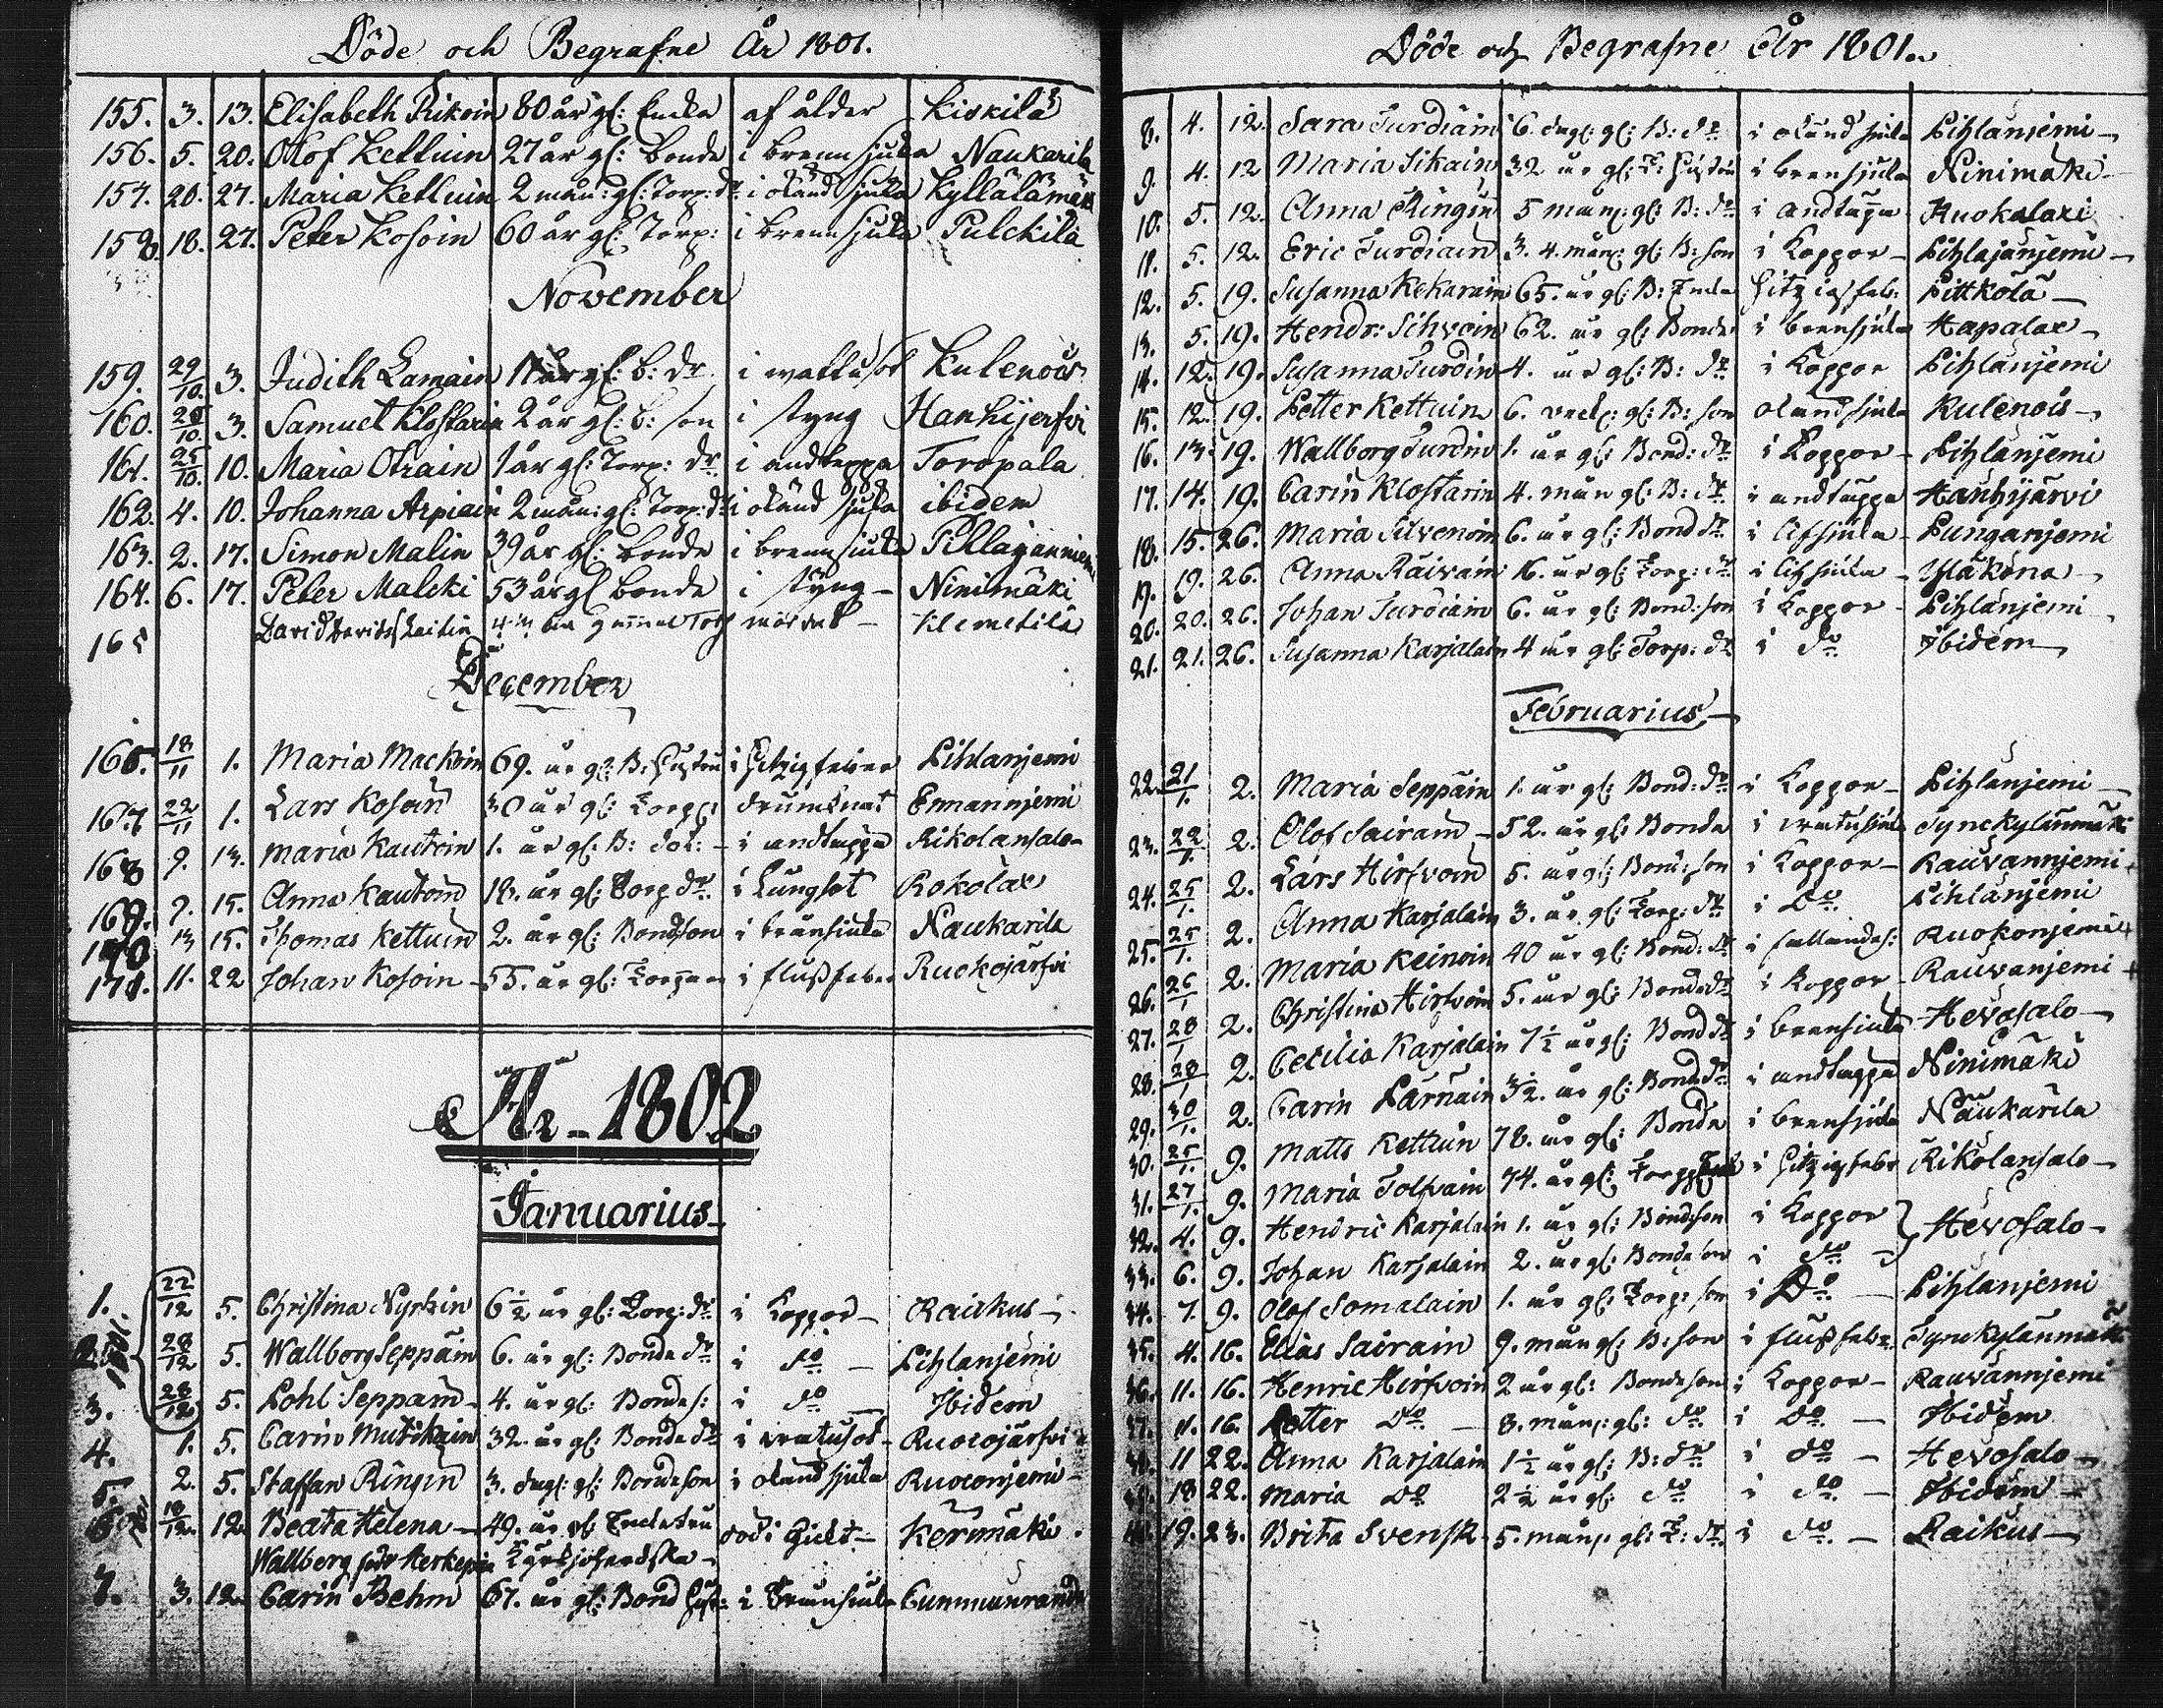 Döde och Begrafne År 1801.
155. 3. 13. Elisabeth Rikoin 80 år gl: Enka af ålder Kiskilä
156. 5. 20. Olof Kettuin 27 år gl: bonde i brenn sjuka Naukarila
157. 20. 27. Maria Kettuin 2 mån: gl: Torp: dr i okänd sjuka Kyllälämäki
158. 18. 27. Peter Kosoin 60 år gl: Torp: i brenn sjuka Pulckila
November
159. 29/10. 3. Judith Lamain 1 år gl: b: dr i wattusot Kulenois
160. 20/10. 3. Samuel Klostarin 2 år gl: b: son i styng Hanhijerfvi
161. 25/10. 10. Maria Otrain 1 år gl: Torp: dr i andteppa Toropala
162. 4. 10. Johanna Arpiain 2 mån: gl: Torp: dr i okänd sjuka ibidem
163. 2. 17. Simon Malin 39 år gl: bonde i brenn sjuka Pihlajanniemi
164. 6. 17. Peter Malcki 53 år gl bonde i styng - Ninimäki
165 David Davidss Laitin Klemetilä
December
166. 18/11 1. Maria Mackoin 69. år gl: B: Hustru i Hitzig feber Pihlanjemi
167 22/11 1. Lars Kosoin 30 år gl: Torp: drunknat Ennannjemi
168 9. 13. Maria Kautoin 1. år gl: B: dot: - i andtäppa Rikolansalo-
169. 9. 15. Anna Kautoin 18. år gl: Torp dr. i Lungsot Rokolax
170 13 15. Thomas Kettuin 2. år gl: Bondson i brännsiuka Naukarila
171. 11. 22 Johan Kosoin - 55. år gl: Torpare i flussfeber Ruokojärfvi
År - 1802
Januarius
1. 22/12 5. Christina Nyrhin 6 1/2 år gl: Torp: dr i Koppor - Raikus -
2. 1801. 28/12 5. Wallborg Seppäin 6. år gl: Bonde dr i do - Pihlanjemi
3. 28/12 5. Pohl Seppäin - 4. år gl: Bonde s: i do - Ibidem
4. 1. 5. Carin Mutikain 32. år gl: Bonde dr i watusot - Ruocojärfvi
5. 2. 5. Staffan Ringin 3. dag: gl: Bondeson i okänd sjuka Ruoconjemi -
6. 18/12. 12. Beata Helena - 49. år gl Enkefru död i Gickt - Kerimäki
Wallberg född Herkepäa
7. 3. 12. Carin Behm 67. år gl: Bond Hust: i brännsiuka Cummunranda
Döde och Begrafne År 1801.
8. 4. 12. Sara Turdiain 6. dag: gl: B: dr i okänd siuka Pihlanjemi -
9. 4. 12 Maria Sikain 32 år gl: T: Hustru i brensjuka Ninimäki -
10. 5. 12. Anna Ringin 5 mån: gl: B: dr i andtäppa Ruokalaxi
11. 5. 12. Eric Turdiain 3. 4. mån: gl: B: son i Koppor - Pihlajanjemi -
12. 5. 19. Susanna Kekarain 65. år gl: B: Enka Hitzigfeb: Pittkölä -
13. 5. 19. Hendr: Sihvoin 62. år gl: Bonde i brensjuka Hapalax -
14. 12. 19. Susanna Turdin 4. år gl: B: dr i Koppor Pihlanjemi
15. 12. 19. Petter Kettuin 6. veck: gl: B: son okändsjuka Kulenois -
16. 13. 19. Wallborg Turdin 1. år gl: Bond: dr i Koppor - Pihlanjemi
17. 14. 19. Carin Klostarin 4. mån gl: B: dr i andtäppa Hanhijärvi
18. 15. 26. Maria Silvenoin 6. år gl: Bond dr i Lifsjuka - Punganjemi
19. 19. 26. Anna Räivain 16. år gl: Torp: dr i Lifsjuka - Yläköna -
20. 20. 26. Johan Turdiain 6. år gl: Bond: son i Koppor - Pihlanjemi
21. 21. 26. Susanna Karjalain 4 år gl: Torp: dr i do Ibidem
Februarius
22. 21/1. 2. Maria Seppäin 1. år gl: Bond: dr i Koppor - Pihlanjemi -
23. 22/1. 2. Olof Sairain - 52. år gl: Bonde i watusiuk Tynckylänmäki
24. 25/1. 2. Lars Hirfvoin 5. år gl: Bond: son i Koppor - Rauvannjemi
25. 25/1. 2. Anna Karjalain 3. år gl: Torp: dr i Do Pihlanjemi
26. 26/1 2. Maria Keinoin 40 år gl: Bond: dr i fallandes: Ruokonjemi
27. 28/1 2. Christina Hirfvoin 5. år gl: Bonde dr i Koppor - Rauvanjemi +
28. 28/1 2. Cecilia Karjalain 7 1/2 år gl: Bond dr i brensiuka Hevosalo -
29. 30/1. 2. Carin Pärnäin 3 1/2. år gl: Bonde dr i andtäppa Ninimäki
30. 25/1. 9. Matts Kettuin 78. år gl: Bonde i brensjuka Naukarila
31. 27/1. 9. Maria Tolfvain 74. år gl: Torpp i Hitzigfebr Rikolansalo -
32. 4. 9. Hendric Karjalain 1. år gl: Bondeson i Koppor } Hevosalo -
33. 6. 9. Johan Karjalain 2. år gl: Bonde son i do -
34. 7. 9. Olof Somalain 1. år gl: Torp: son i Do - Pihlanjemi
35. 4. 16. Elias Sairain 9. mån gl: B: son i flussfeber Tynckylänmäki
36. 11. 16. Henric Hirfvoin 2 år gl: Bondeson i Koppor - Rauvannjemi
37. 11. 16. Petter Do - 8. mån: gl: do i Do - Ibidem
38. 11 22. Anna Karjalain 1 1/2 år gl: B: dr i do - Hevosalo -
39. 18 22. Maria Do 2 1/2 år gl: do i do - Ibidem -
40. 19. 23. Brita Svensk 5. mån: gl: T: dr i do - Raikus -